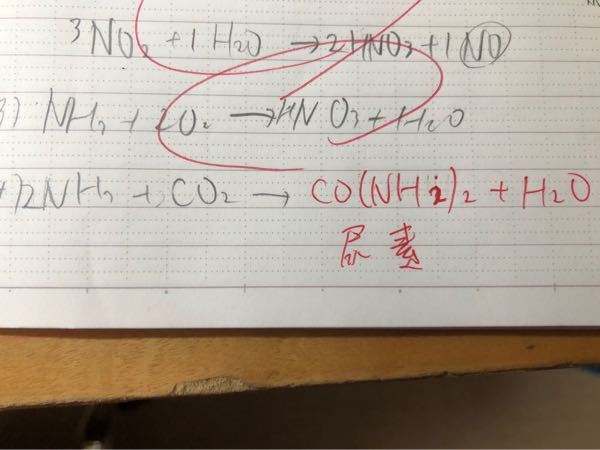 3NO₂ + 1H₂O → 2HNO₃ + 1NO
3) NH₃ + 2O₂ → HNO₃ + H₂O
4) 2NH₃ + CO₂ → CO(NH₂)₂ + H₂O
尿素